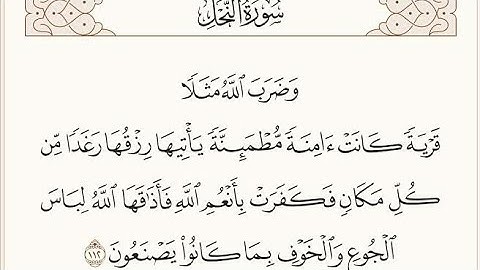 سُورَةُ النَّحْلِ
وَضَرَبَ ٱللَّهُ مَثَلًا
قَرْيَةً كَانَتْ ءَامِنَةً مُّطْمَئِنَّةً يَأْتِيهَا رِزْقُهَا رَغَدًا مِّن
كُلِّ مَكَانٍ فَكَفَرَتْ بِأَنْعُمِ ٱللَّهِ فَأَذَٰقَهَا ٱللَّهُ لِبَاسَ
ٱلْجُوعِ وَٱلْخَوْفِ بِمَا كَانُوا۟ يَصْنَعُونَ ١١٢